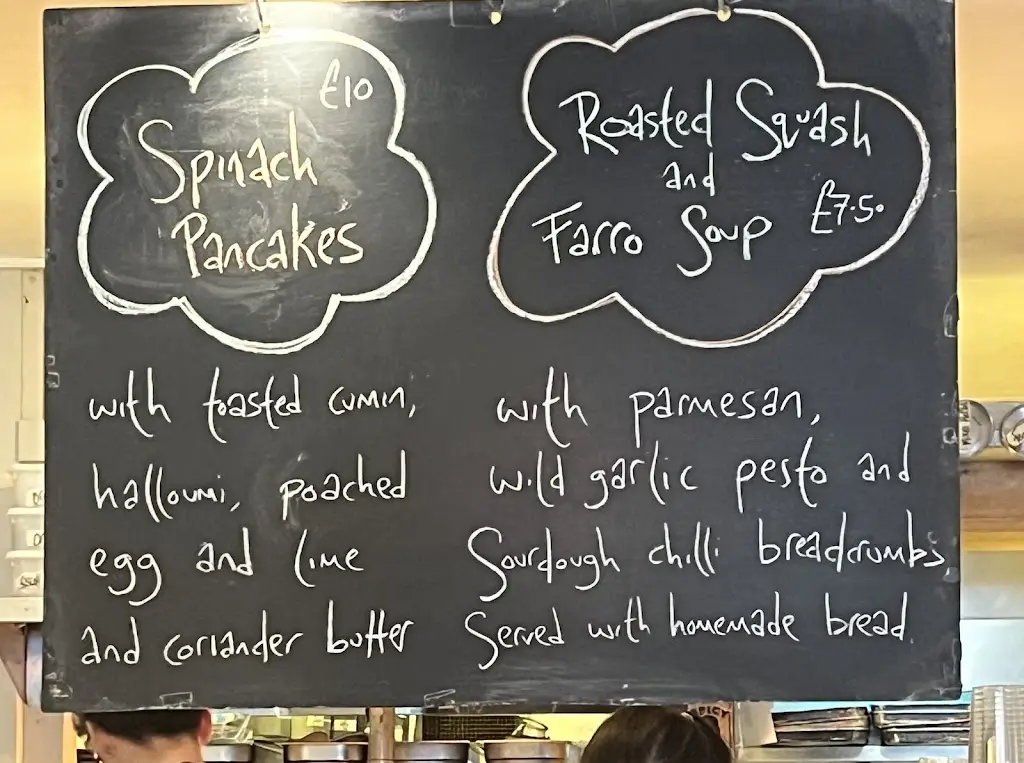 £10
Spinach
Pancakes
with toasted cumin,
halloumi, poached
egg and lime
and coriander butter
Roasted Squash
and
Farro Soup £7.50
with parmesan,
wild garlic pesto and
Sourdough chilli breadcrumbs,
Served with homemade bread.